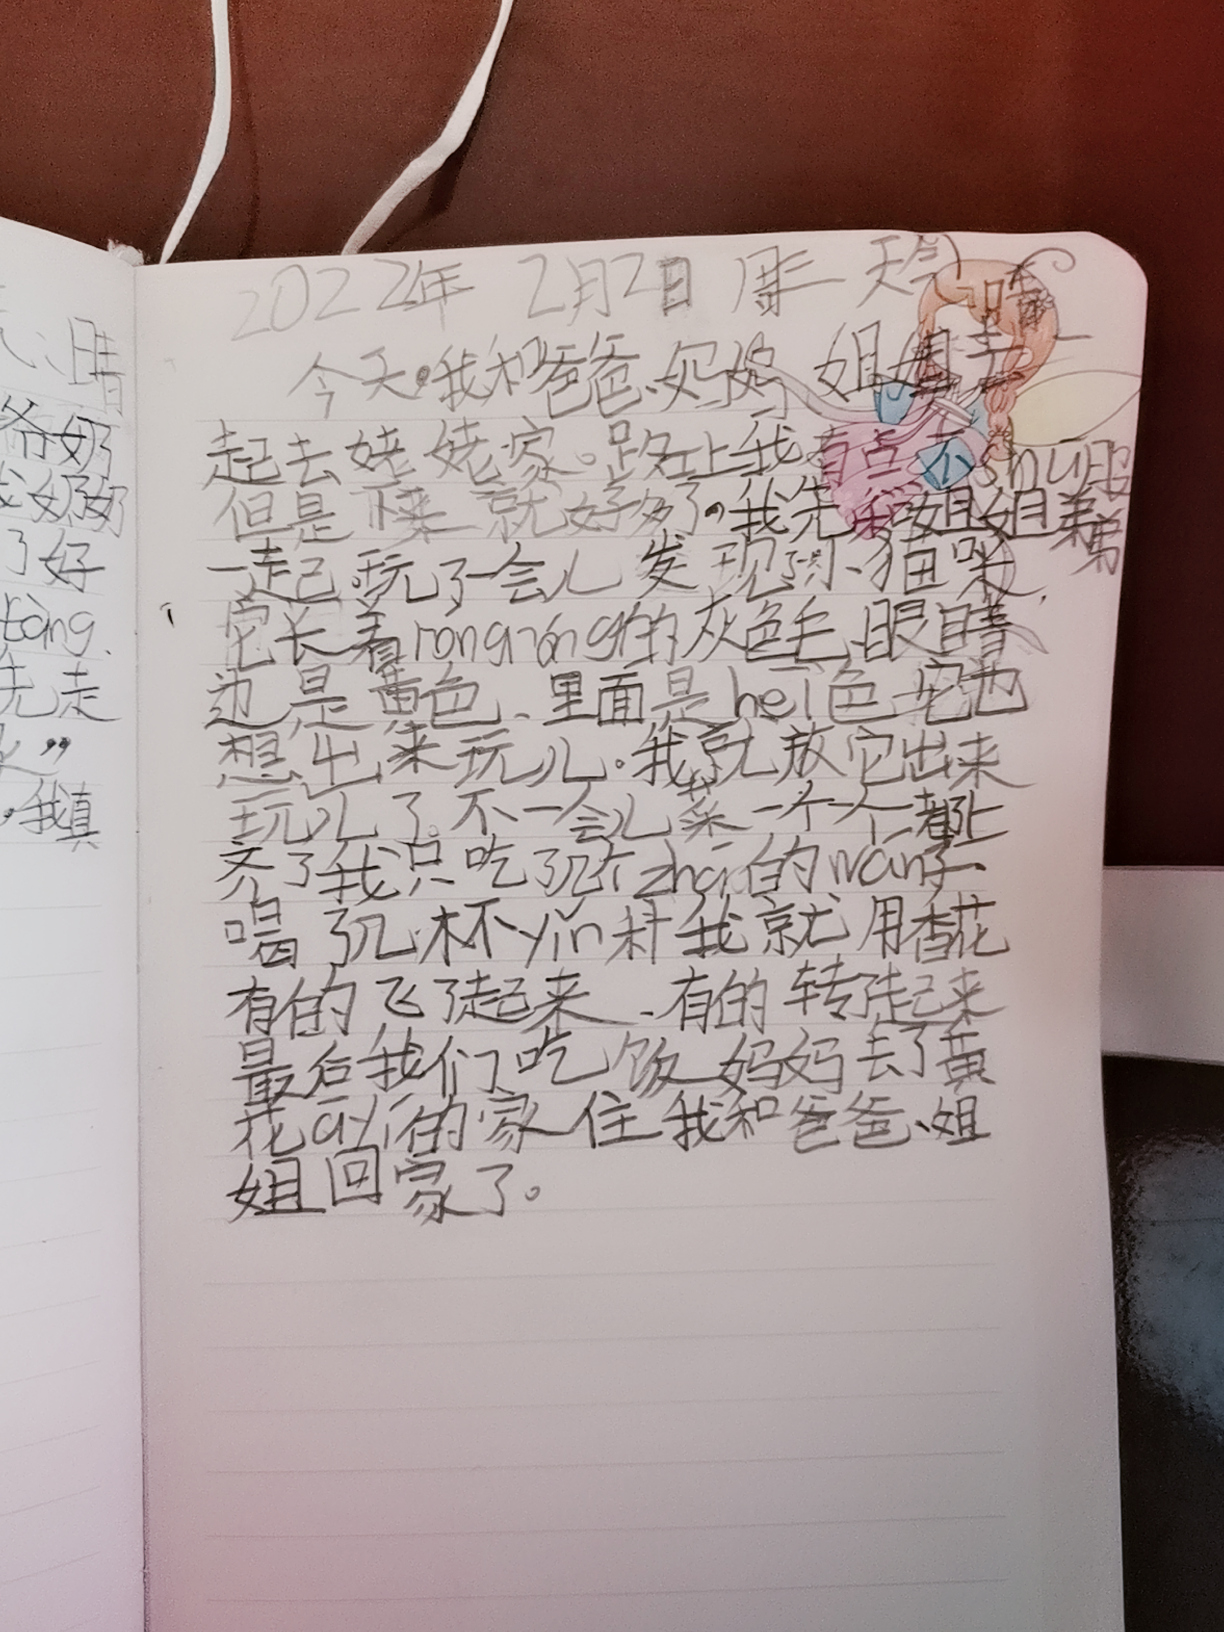 2022年 2月2日 周三 天气:晴
今天,我和爸爸、妈妈 姐姐一
起去姥姥家。路上我有点不shū服
但是下来就好多了。我先和姐姐弟弟
一起玩了一会儿 发现了小猫咪,
它长着róngróng的灰色毛、眼睛
边是黄色、里面是hēi色 它也
想出来玩儿。我就放它出来
玩儿了。不一会儿菜一个一个都上
齐了我只吃了几个zhá的wán子、
喝了几杯yǐn料 我就用香花
有的飞了起来、有的转了起来
最后我们吃饭 妈妈去了黄
花āyí的家住 我和爸爸、姐
姐回家了。
晴
爷奶
奶奶
了好
tàng
先走
”
。我真